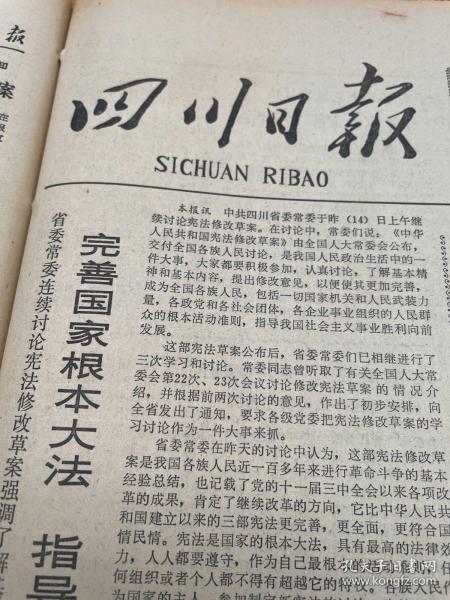 报
四川日报
SICHUAN RIBAO
省委常委连续讨论宪法修改草案强调了解
完善国家根本大法
指导
本报讯 中共四川省委常委于昨（14）日上午继
续讨论宪法修改草案。在讨论中，常委们说：《中华
人民共和国宪法修改草案》由全国人大常委会公布，
交付全国各族人民讨论，是我国人民政治生活中的一
件大事，大家都要积极参加，认真讨论，了解基本精
神和基本内容，提出修改意见，以便使其更加完善，
成为全国各族人民，包括一切国家机关和人民武装力
量，各政党和各社会团体，各企业事业组织的人民群
众的根本活动准则，指导我国社会主义事业胜利向前
发展。
这部宪法草案公布后，省委常委们已相继进行了
三次学习和讨论。常委同志曾听取了有关全国人大常
委会第22次、23次会议讨论修改宪法草案的情况介
绍，并根据前两次讨论的意见，作出了初步安排，向
全省发出了通知，要求各级党委把宪法修改草案的学
习讨论作为一件大事来抓。
省委常委在昨天的讨论中认为，这部宪法修改草
案是我国各族人民近一百多年来进行革命斗争的基本
经验总结，也记载了党的十一届三中全会以来各项改
革的成果，肯定了继续改革的方向，它比中华人民共
和国建立以来的三部宪法更完善，更全面，更符合国
情民情。宪法是国家的根本大法，具有最高的法律效
力，人人都要遵守，作为自己最根本的活动准则，任
何组织或者个人都不得有超越它的特权。各族人民作
为国家的主人，参加制定新宪法的讨论